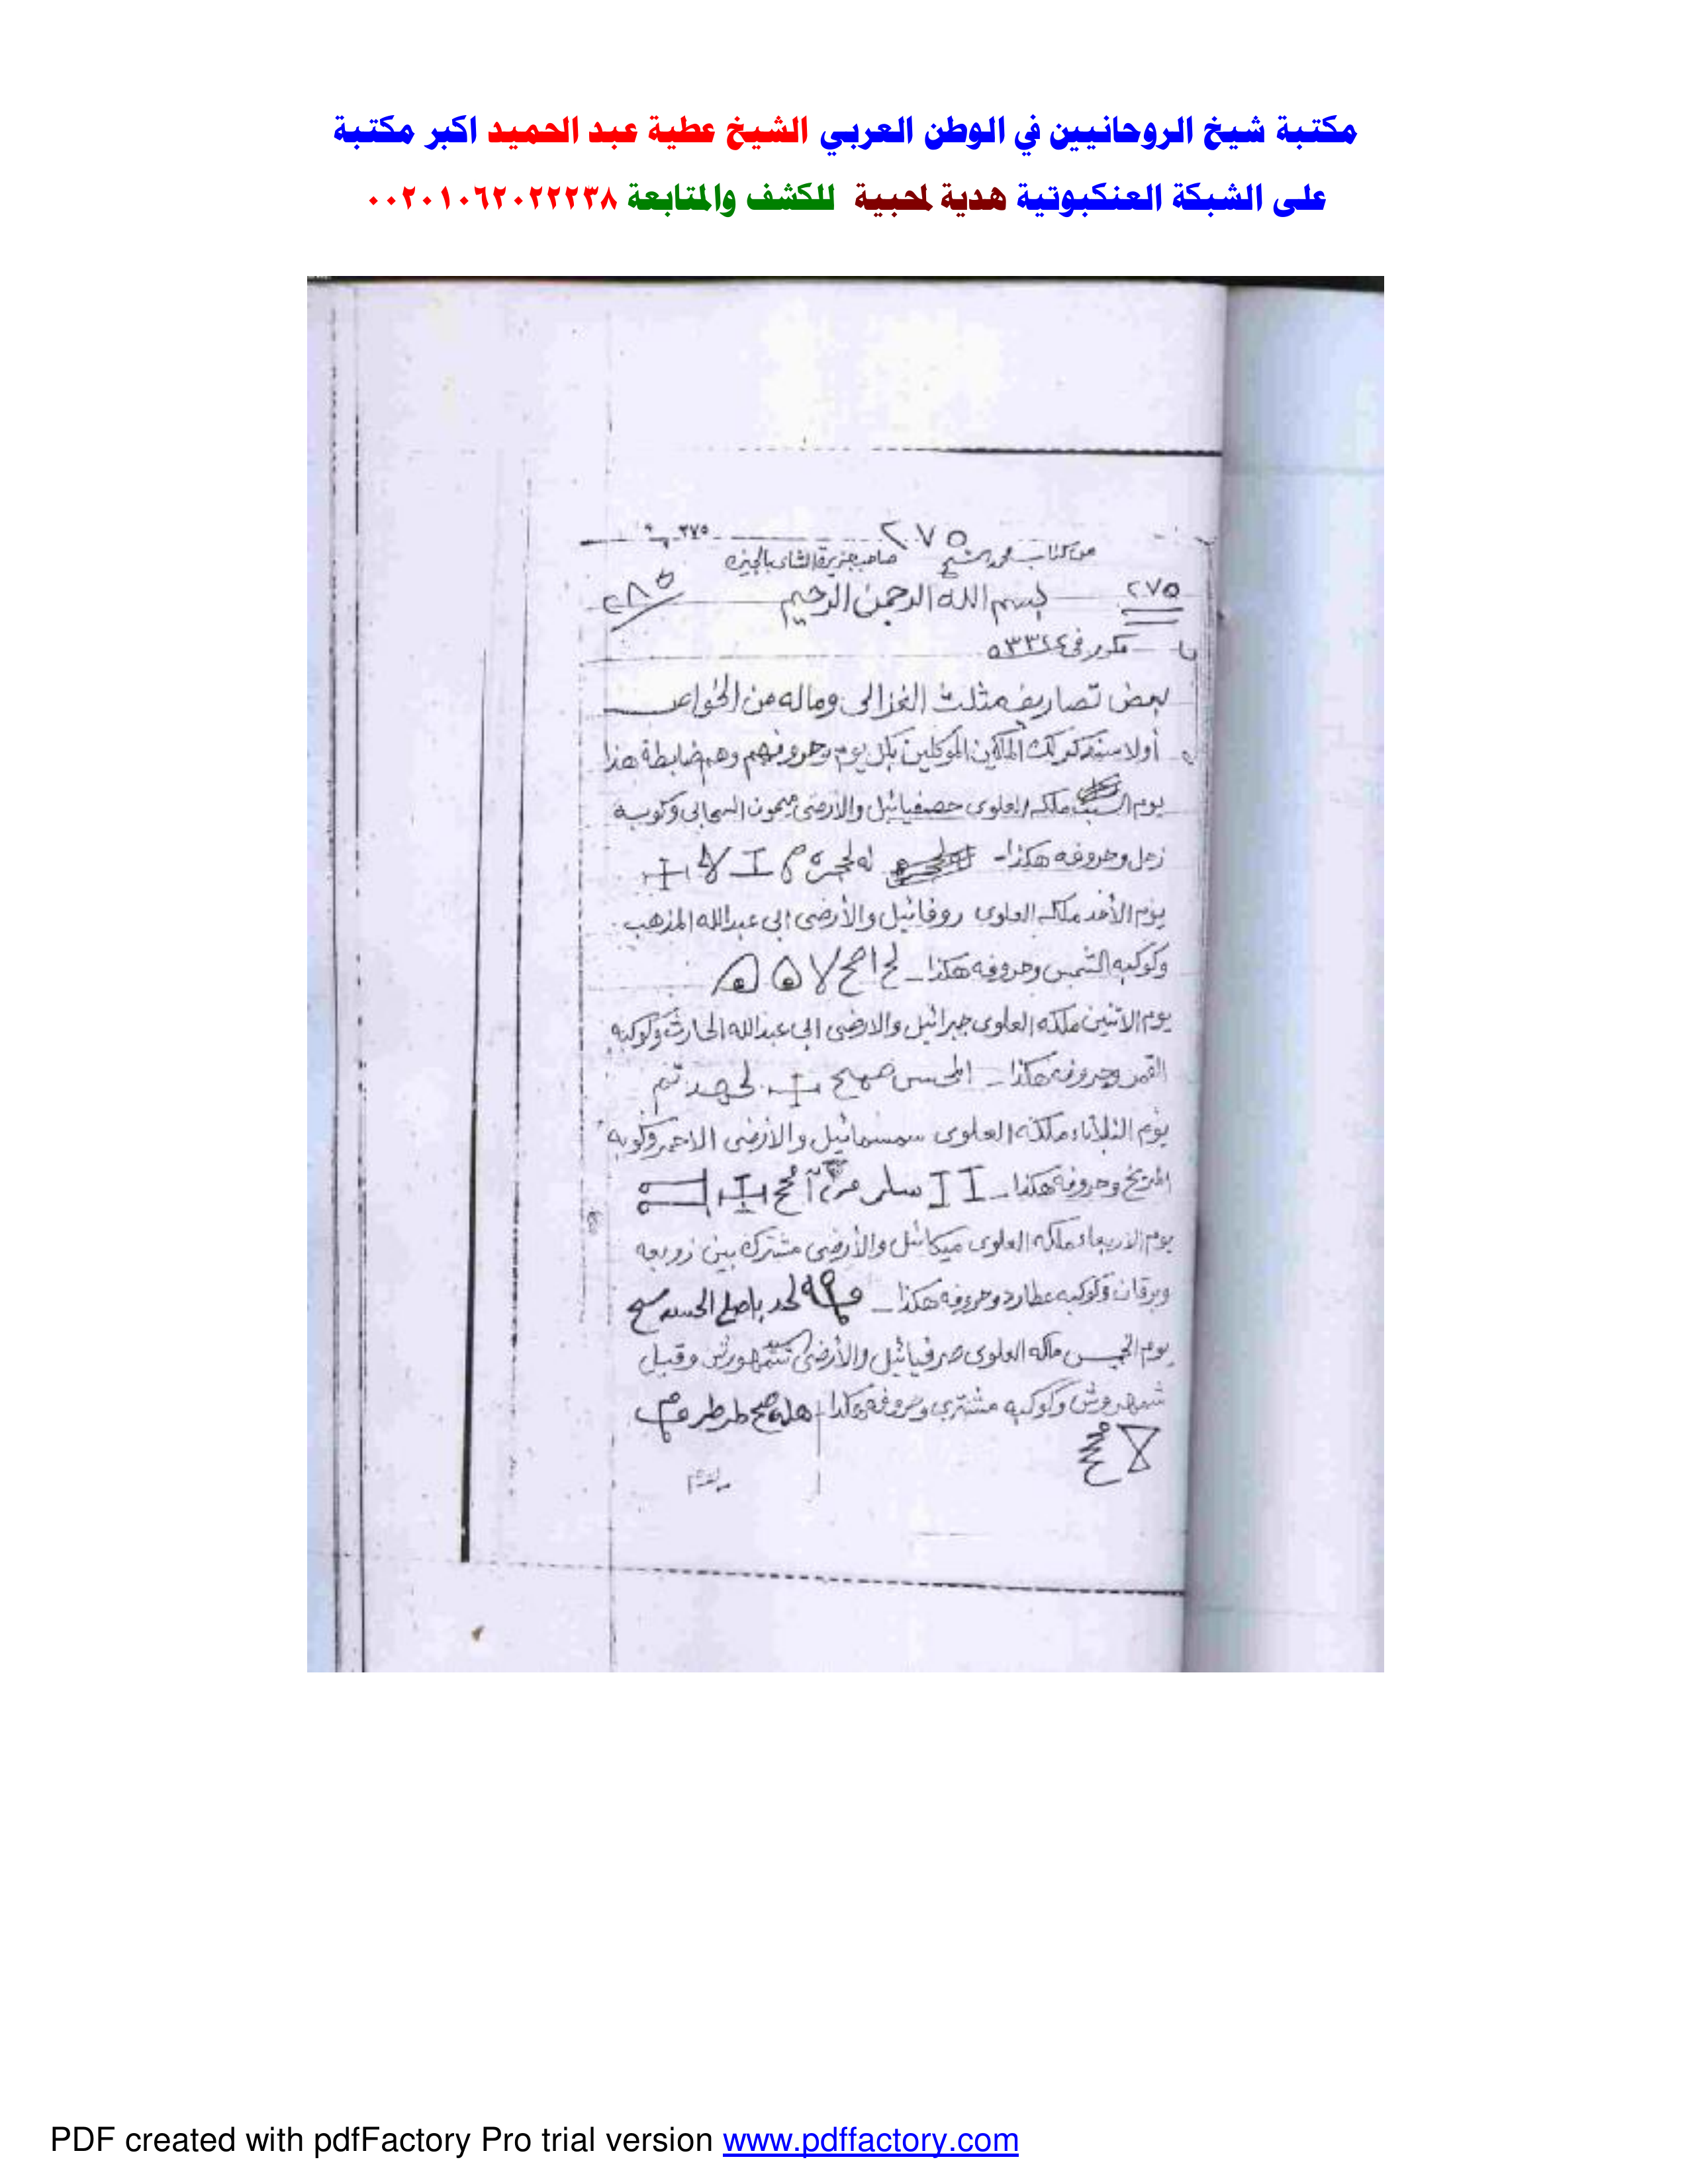 مكتبة شيخ الروحانيين في الوطن العربي الشيخ عطية عبد الحميد اكبر مكتبة
على الشبكة العنكبوتية هدية لمحبية للكشف والمتابعة ٠٠٢٠١٠٦٢٠٢٢٢٣٨
٢٧٥ ٢٧٥
من كتاب الشيخ صاحب جزيرة بالجيزه
٢٧٥ بسم الله الرحمن الرحيم
مكرر في
بعض تصاريف مثلث الغزالى وماله من الخواص
أولا سنذكر لك الملكين الموكلين بكل يوم وحروفهم وهم ضابطة هذا
يوم السبت ملكه العلوى حصفيائيل والارضى ميمون السحابى وكوبه
زحل وحروفه هكذا-
يوم الأحد ملكه العلوى روفائيل والأرضى ابى عبدالله المذهب
وكوكبه الشمس وحروفه هكذا-
يوم الاتنين ملكه العلوى جبرائيل والارضى ابى عبدالله الحارث وكوكبه
القمر وحروفه هكذا-
يوم الثلاثاء ملكه العلوى سمسمائيل والأرضى الاحمر وكوبه
المريخ وحروفه هكذا-
يوم الاربعاء ملكه العلوى ميكائيل والأرضى مشترك بين زوبعه
وبرقان وكوكبه عطارد وحروفه هكذا-
يوم الخميس ملكه العلوى صرفيائيل والأرضى وقيل
شمهروش وكوكبه مشترى وحروفه هكذا
PDF created with pdfFactory Pro trial version www.pdffactory.com